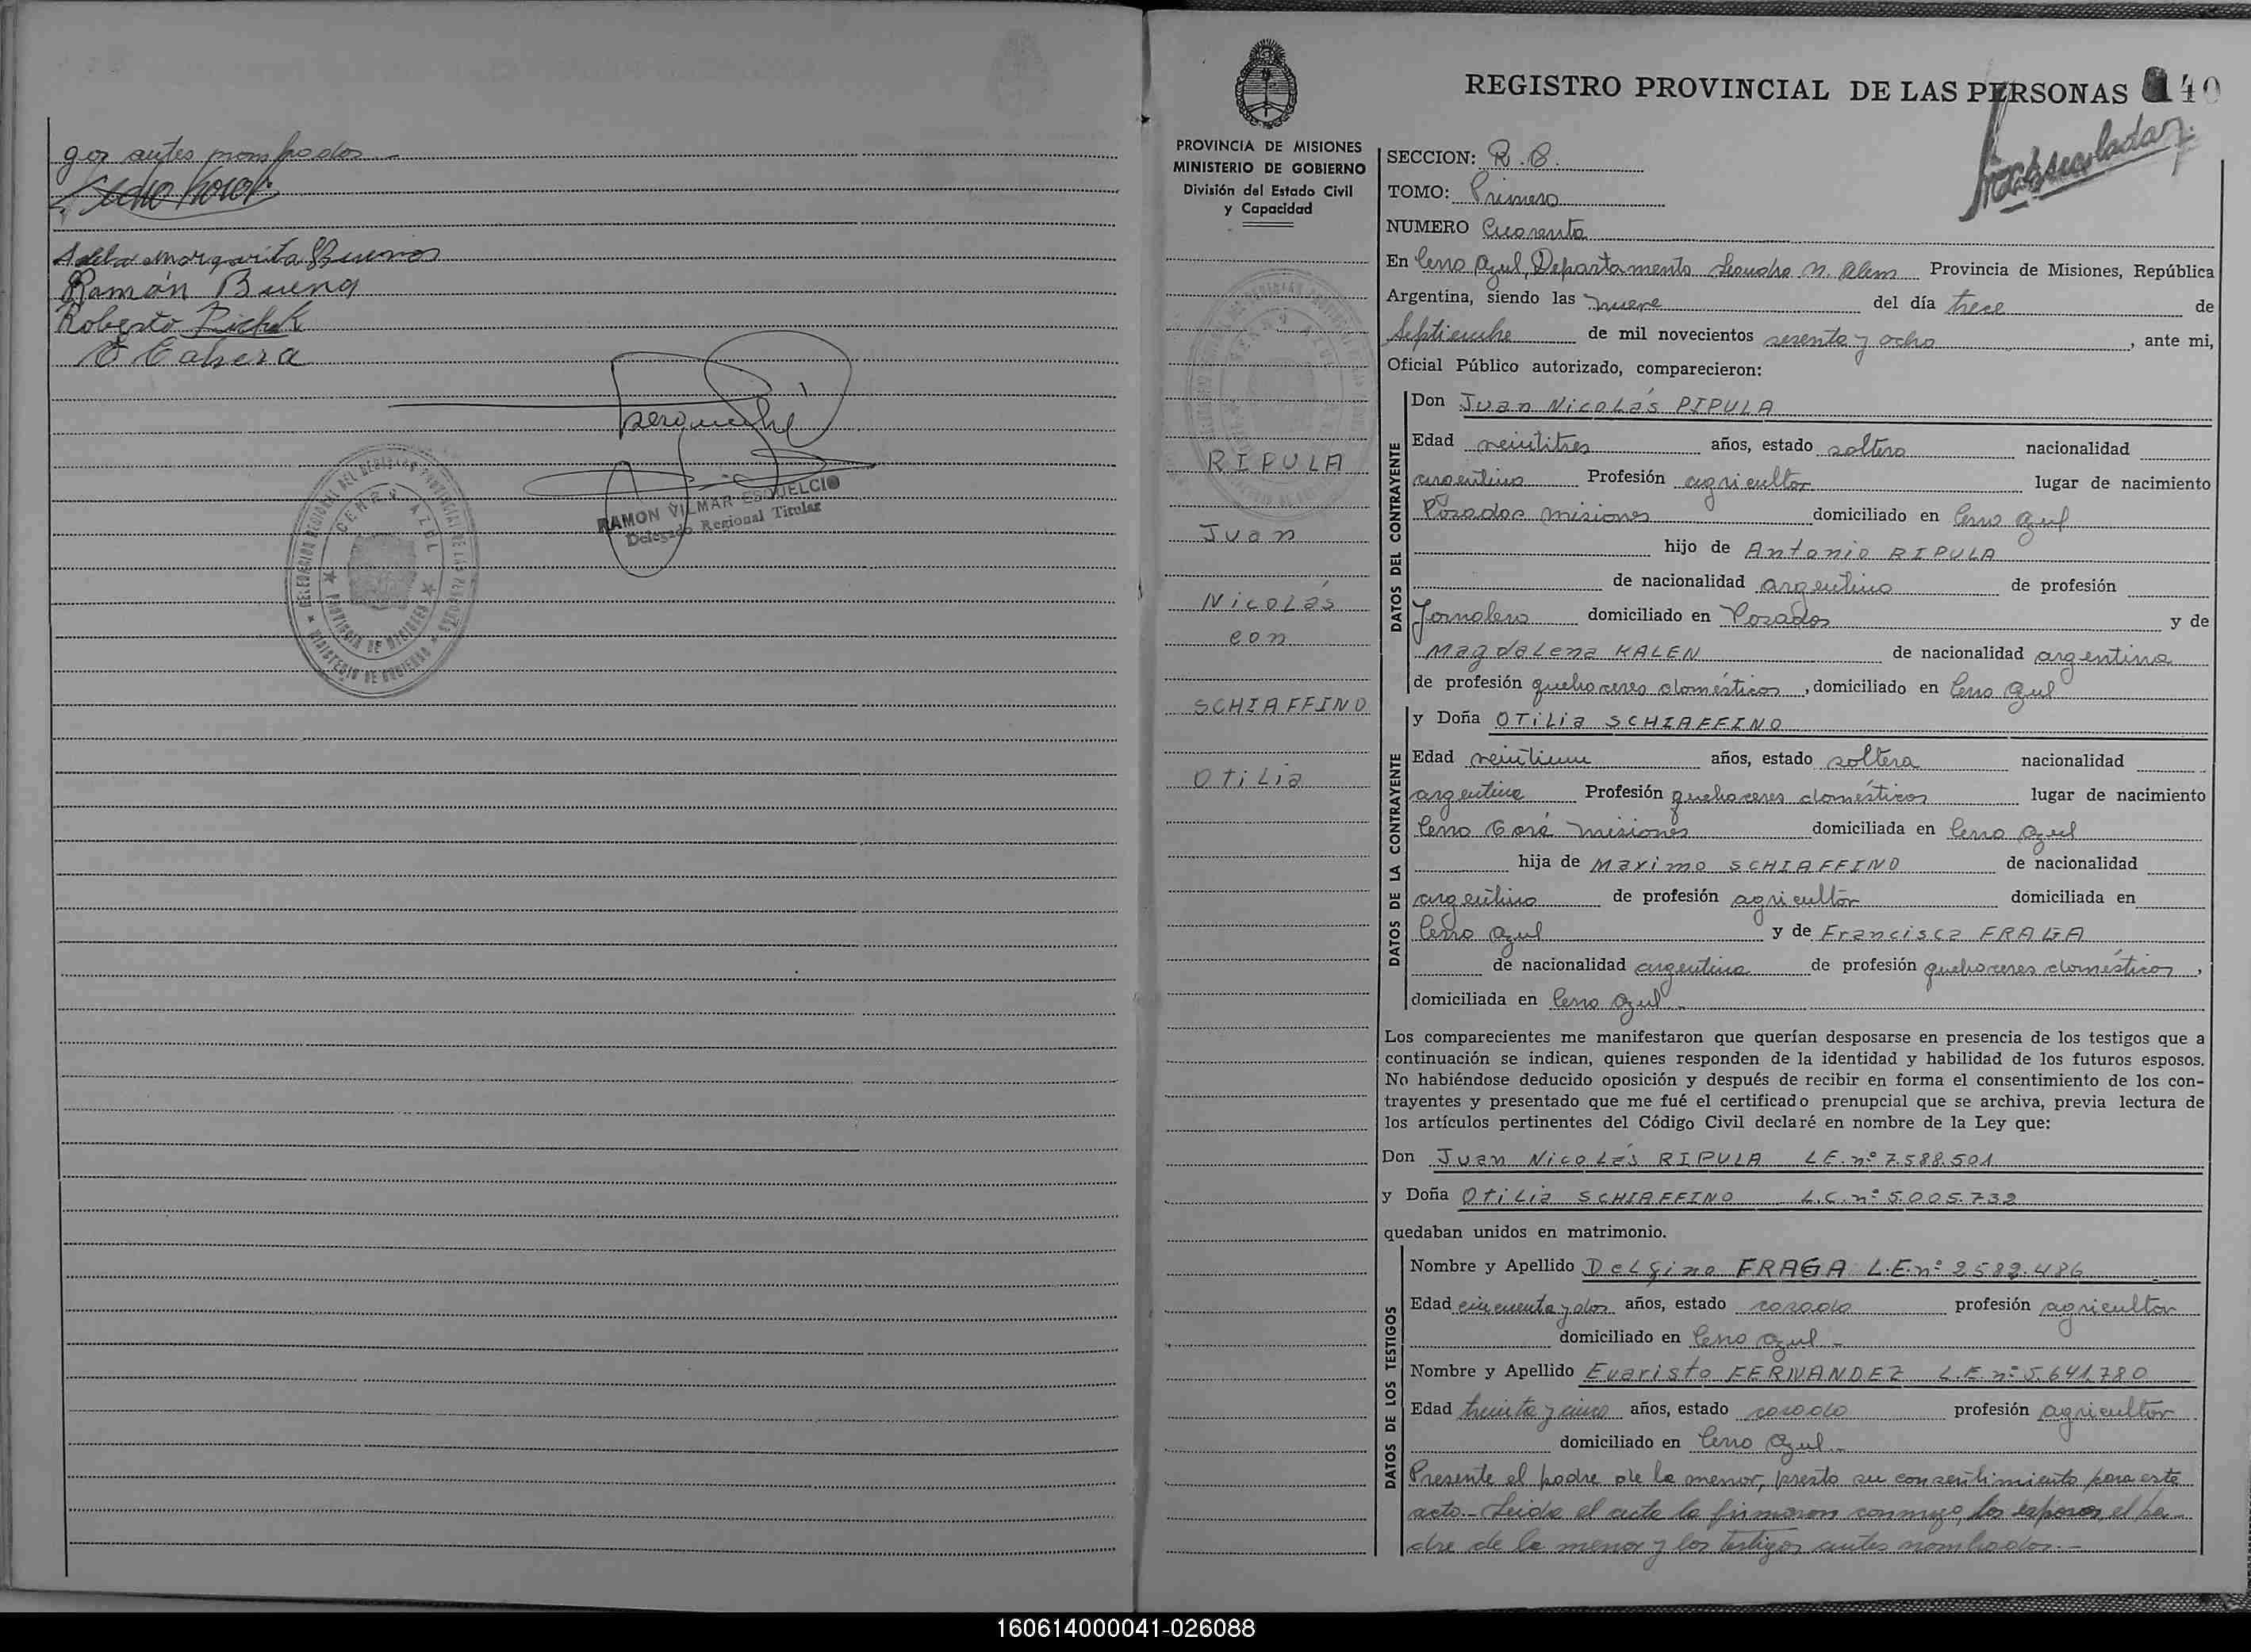 gos antes nombrados.-
Adelia Margarita Buenos
Ramón Bueno
Roberto
E Cabrera
RAMON VILMAR ESQUELCIO
Delegado Regional Titular
DELEGACION REGIONAL DEL REGISTRO PROVINCIAL DE LAS PERSONAS
CERRO AZUL
PROVINCIA DE MISIONES
MINISTERIO DE GOBIERNO
PROVINCIA DE MISIONES
MINISTERIO DE GOBIERNO
División del Estado Civil
y Capacidad
RIPULA
Juan
Nicolás
con
SCHIAFFINO
Otilia
REGISTRO PROVINCIAL DE LAS PERSONAS 40
SECCION: R.C.
TOMO: Primero
NUMERO Cuarenta
En Cerro Azul, Departamento Leandro N. Alem Provincia de Misiones, República
Argentina, siendo las nueve del día trece de
Septiembre de mil novecientos sesenta y ocho, ante mi,
Oficial Público autorizado, comparecieron:
DATOS DEL CONTRAYENTE
Don Juan Nicolás PIPULA
Edad veintitres años, estado soltero nacionalidad
argentino Profesión agricultor lugar de nacimiento
Posadas Misiones domiciliado en Cerro Azul
hijo de Antonio RIPULA
de nacionalidad argentino de profesión
Jornalero domiciliado en Posadas y de
Magdalena KALEN de nacionalidad argentina
de profesión quehaceres domésticos, domiciliado en Cerro Azul
DATOS DE LA CONTRAYENTE
y Doña Otilia SCHIAFFINO
Edad veintiun años, estado soltera nacionalidad
argentina Profesión quehaceres domésticos lugar de nacimiento
Cerro Corá Misiones domiciliada en Cerro Azul
hija de Maximo SCHIAFFINO de nacionalidad
argentino de profesión agricultor domiciliada en
Cerro Azul y de Francisca FRAGA
de nacionalidad argentina de profesión quehaceres domésticos,
domiciliada en Cerro Azul-
Los comparecientes me manifestaron que querían desposarse en presencia de los testigos que a
continuación se indican, quienes responden de la identidad y habilidad de los futuros esposos.
No habiéndose deducido oposición y después de recibir en forma el consentimiento de los con-
trayentes y presentado que me fué el certificado prenupcial que se archiva, previa lectura de
los artículos pertinentes del Código Civil declaré en nombre de la Ley que:
Don Juan Nicolás RIPULA L.E. nº 7.588.501
y Doña Otilia SCHIAFFINO L.C. nº 5.005.732
quedaban unidos en matrimonio.
DATOS DE LOS TESTIGOS
Nombre y Apellido Delfino FRAGA L.E. nº 2582.486
Edad cincuenta y dos años, estado casado profesión agricultor
domiciliado en Cerro Azul-
Nombre y Apellido Evaristo FERNANDEZ L.E. nº 5.641.780
Edad treinta y cinco años, estado casado profesión agricultor
domiciliado en Cerro Azul-
Presente el padre de la menor, presto su consentimiento para este
acto.- Leida el acta la firmaron conmigo, los esposos, el pa-
dre de la menor y los testigos antes nombrados.-
160614000041-026088